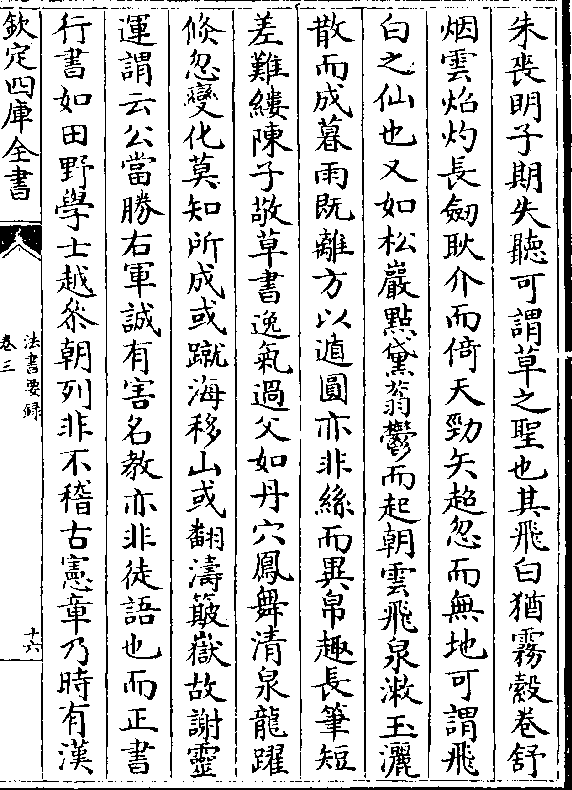 朱喪明子期失聽可謂草之聖也其飛白猶霧縠卷舒
烟雲炤灼長劒耿介而倚天勁矢超忽而無地可謂飛
白之仙也又如松巖點黛蓊鬱而起朝雲飛泉潄玉灑
散而成暮雨既離方以遁圓亦非絲而異帛趣長筆短
差難縷陳子敬草書逸氣過父如丹穴鳳舞清泉龍躍
倐忽變化莫知所成或蹴海移山或翻濤簸嶽故謝靈
運謂云公當勝右軍誠有害名教亦非徒語也而正書
行書如田野學士越叅朝列非不稽古憲章乃時有漢
欽定四庫全書
法書要録
卷三
十六